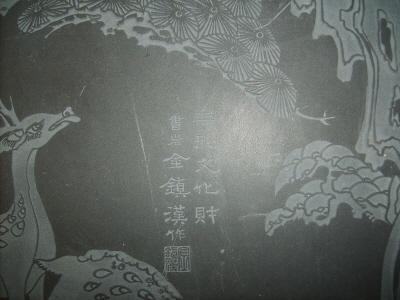 无形文化財
書岩 金鎮漢作